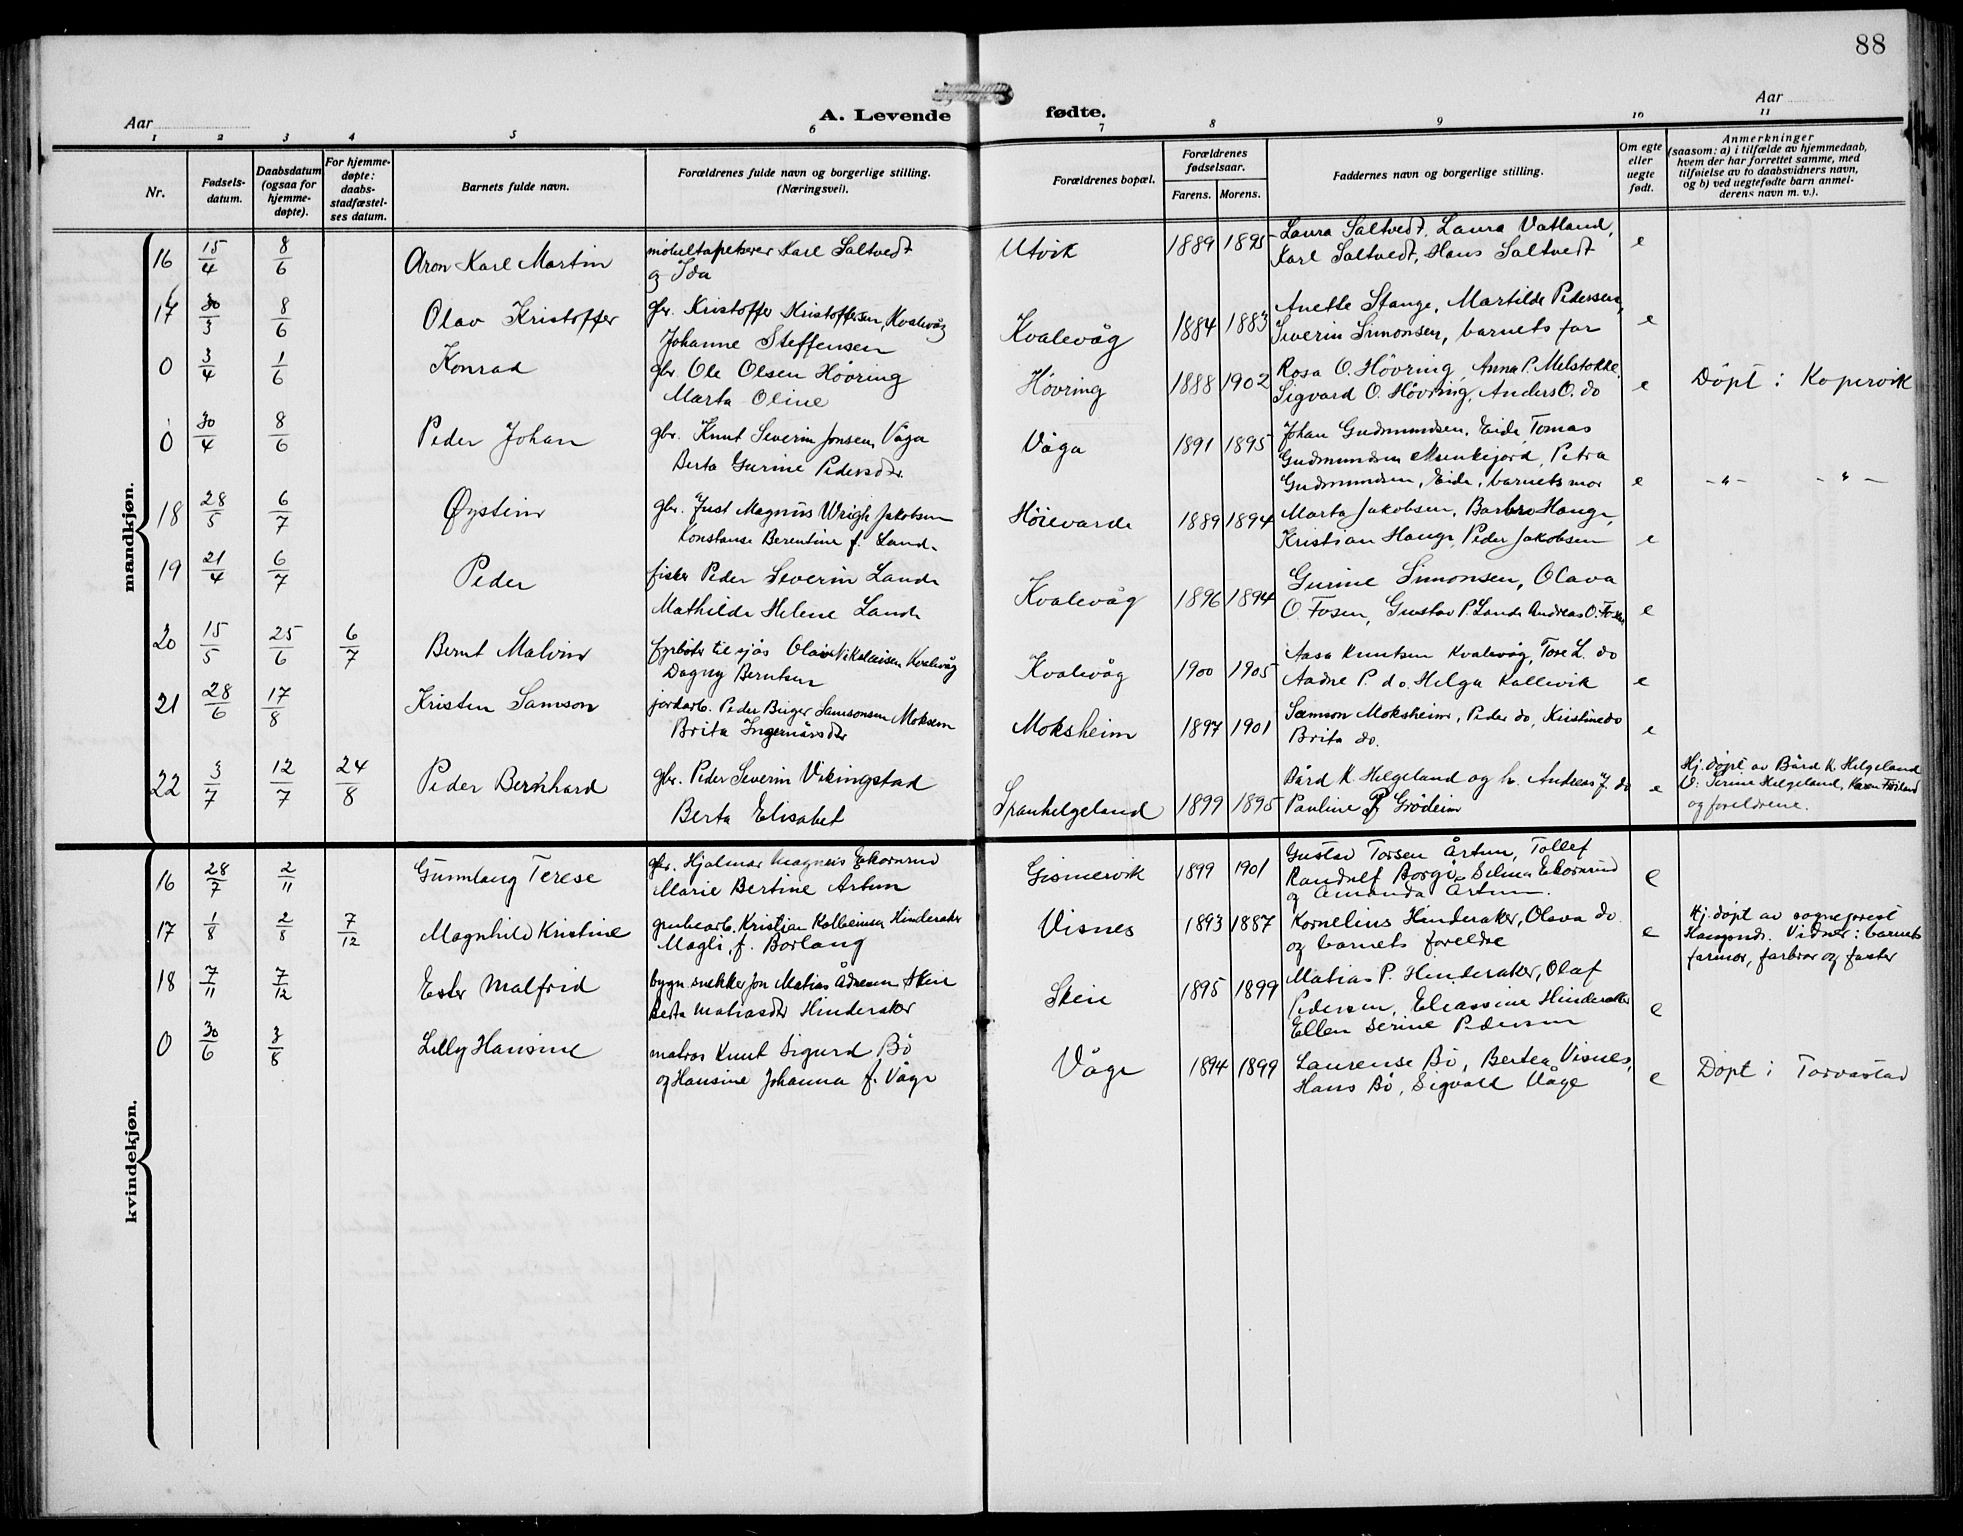 88
A. Levende fødte.
Aar
Aar
1 2 3 4 5 6 7 8 9 10 11
Nr.
Fødsels-
datum.
Daabsdatum
(ogsaa for
hjemme-
døpte).
For hjemme-
døpte:
daabs-
stadfæstel-
ses datum.
Barnets fulde navn.
Forældrenes fulde navn og borgerlige stilling.
(Næringsvei).
Forældrenes bopæl.
Forældrenes
fødselsaar.
Farens. Morens.
Faddernes navn og borgerlige stilling.
Om egte
eller
uegte
født.
Anmerkninger
(saasom: a) i tilfælde av hjemmedaab,
hvem der har forrettet samme, med
tilføielse av to daabsvidners navn,
og b) ved uegtefødte barn anmel-
derens navn m. v.).
mandkjøn.
16 15/4 8/6 Aron Karl Martin
møbeltapetserer Karl Saltvedt
og Ida
Utvik 1889 1895
Laura Saltvedt, Laura Vatland,
Karl Saltvedt, Hans Saltvedt
e
17 30/3 8/6 Olav Kristoffer
gbr. Kristoffer Kristoffersen, Kvalevåg
Johanne Steffensen
Kvalevåg 1884 1883
Anette Stange, Martilde Pedersen,
Severin Simonsen, barnets far
e
0 3/4 1/6 Konrad
gbr. Ole Olsen Hövring
Marta Oline
Hövring 1888 1902
Rosa O. Hövring, Anna P. Melstokke,
Sigvard O. Hövring, Anders O. do
e Döpt i Kopervik
0 30/4 8/6 Peder Johan
gbr. Knut Severin Jonsen Våga
Berta Gurine Pedersdtr.
Våga 1891 1895
Johan Gudmundsen, Eide, Tomas
Gudmundsen Munkejord, Petra
Gudmundsen, Eide, barnets mor
e -"- -"-
18 28/5 6/7 Øystein
gbr. Just Magnus Wrigh Jakobsen
Konstanse Berentine f. Lande
Höievarde 1889 1894
Marta Jakobsen, Barbro Hauge,
Kristian Hauge, Peder Jakobsen
e
19 21/4 6/7 Peder
fisker Peder Severin Lande
Mathilde Helene Lande
Kvalevåg 1896 1894
Gurine Simonsen, Olava
O. Fosen, Gustav P. Lande Andreas O. Fosen
e
20 15/5 25/6 6/7 Bernt Malvin
fyrböter til sjös Olai Nikolaisen Kvalevåg
Dagny Berntsen
Kvalevåg 1900 1905
Aasa Knutsen Kvalevåg, Tore L. do
Aadne P. do. Helga Kallevik
e
21 28/6 17/8 Kristen Samson
jordarb. Peder Birger Samsonsen Moksem
Brita Ingemårsdtr
Moksheim 1897 1901
Samson Moksheim, Peder do, Kristine do
Brita do.
e
22 3/7 12/7 24/8 Peder Bernhard
gbr. Peder Severin Vikingstad
Berta Elisabet
Spanhelgeland 1899 1895
Bård K. Helgeland og h. Andreas J. do
Pauline P. Grödeim
e
Hj. döpt av Bård K. Helgeland
V: Serine Helgeland, Karen
og foreldrene.
kvindekjøn.
16 28/7 2/11 Gunnlaug Terese
gbr. Hjalmar Magnus Ekornrud
Marie Bertine Artun
Gismervik 1899 1901
Gustav Torsen Årtun, Tollef
Randulf Borgi, Selma Ekornrud
og Amanda Årtun.
e
17 1/8 2/8 7/12 Magnhild Kristine
grubearb. Kristian Kolbeinsen Hinderaker
Magli, f. Borlaug
Visnes 1893 1887
Kornelius Hinderaker, Olava do.
og barnets foreldre
e
Hj. döpt av sogneprest
Vidner: barnets
farmor, farbror og faster
18 7/11 7/12 Ester Malfrid
bygn. snekker Jon Matias Skeie
Berta Matiasdtr Hinderaker
Skeie 1895 1899
Matias P. Hinderaker, Olaf
Pedersen, Eliassine Hinderaker
Ellen Serine Pedersen
e
0 30/6 3/8 Lilly Hansine
matros Knut Sigurd Bö
og Hansine Johanna f. Våge
Våge 1894 1899
Laurense Bö, Bertea Visnes,
Hans Bö, Sigvald Våge
e Döpt i Torvastad